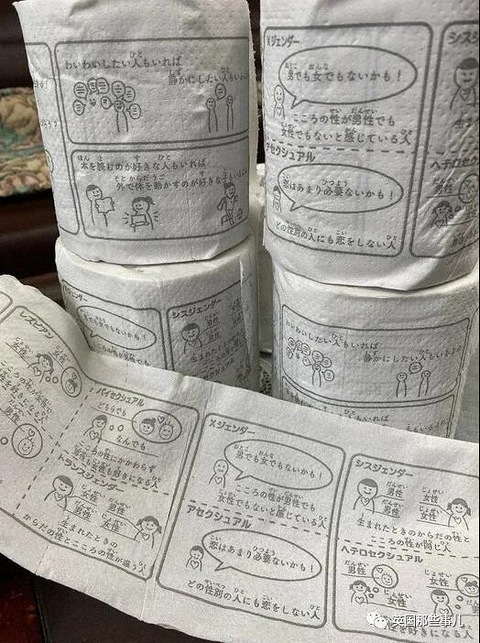 わいわいしたい人もいれば
静かにしたい人もいるよ
本を読むのが好きな人もいれば
外で体を動かすのが好きな
Xジェンダー
男でも女でもないかも！
こころの性が男性でも
女性でもないと感じている人
アセクシュアル
恋はあまり必要ないかも！
どの性別の人にも恋をしない人
シスジ
ヘテロセク
男性
ジェンダー
でも女でもないかも！
シスジェンダー
男性
女性
生まれた
わいわいしたい人もいれば
静かにしたい人もいるよ
レズビアン
女性
女性
男性
バイセクシュアル
どちらでも
なんでも
こころの性にかかわらず
男性も女性も好きになる人
トランスジェンダー
女性
男性
男性
女性
生まれたときの
からだの性とこころの性が違う人
Xジェンダー
男でも女でもないかも！
こころの性が男性でも
女性でもないと感じている人
アセクシュアル
恋はあまり必要ないかも！
どの性別の人にも恋をしない人
シスジェンダー
男性
女性
男性
女性
生まれたときのからだの性と
こころの性が同じ人
ヘテロセクシュアル
男性
女性
女性
男性
性を好きになる人
英国那些事儿